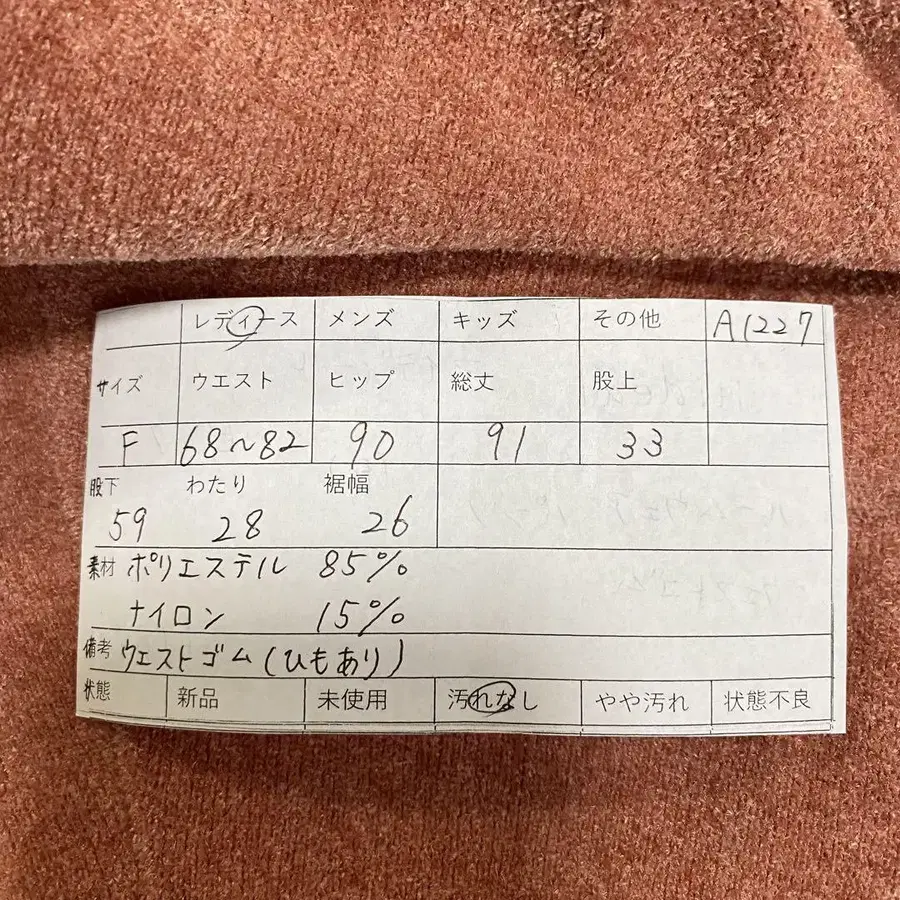 レディース メンズ キッズ その他 A1227
サイズ ウエスト ヒップ 総丈 股上
F 68〜82 90 91 33
股下 わたり 裾幅
59 28 26
素材 ポリエステル 85%
ナイロン 15%
備考 ウエストゴム(ひもあり)
状態 新品 未使用 汚れなし やや汚れ 状態不良